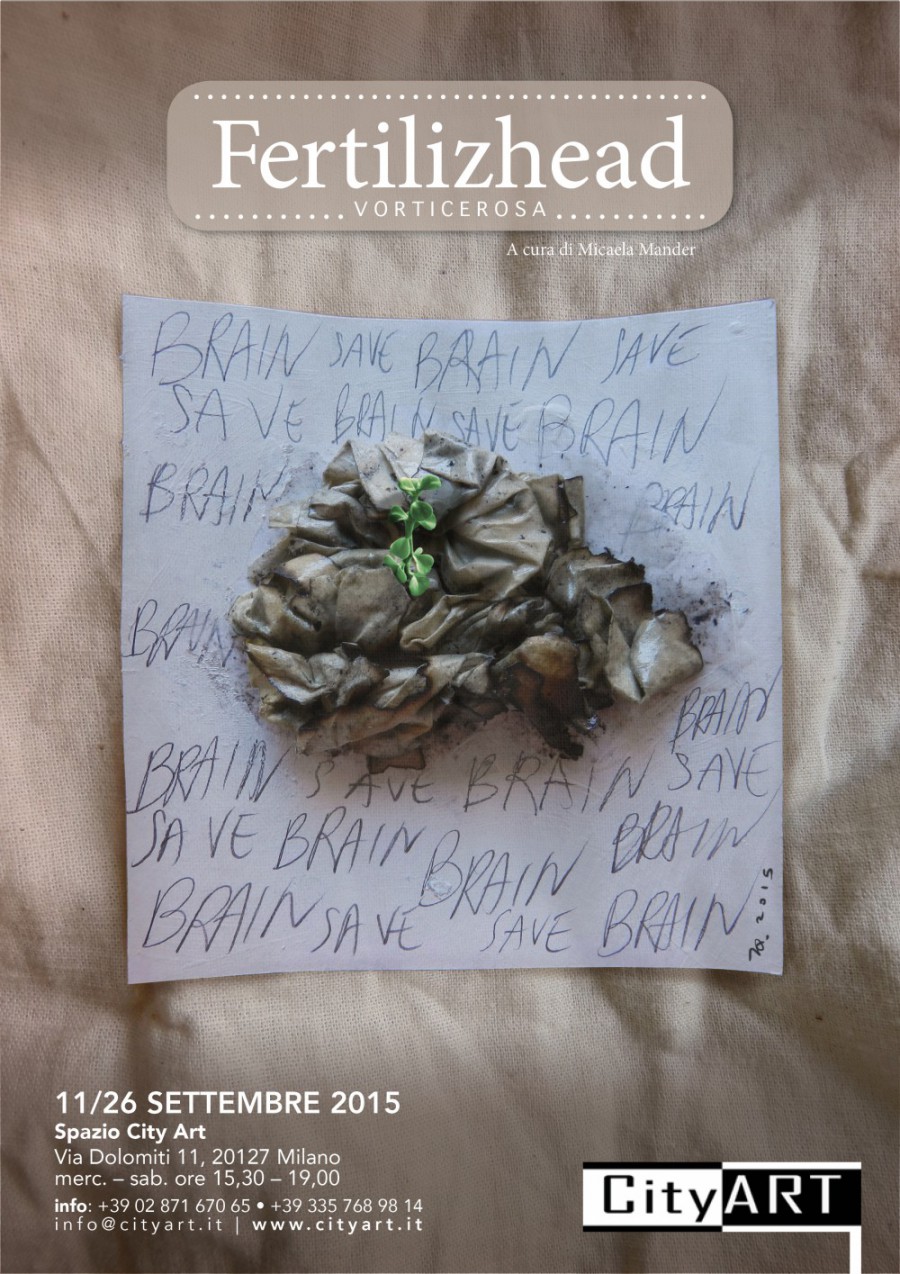 Fertilizhead
VORTICEROSA
A cura di Micaela Mander
BRAIN SAVE BRAIN SAVE
SAVE BRAIN SAVE BRAIN
BRAIN BRAIN
BRAIN
BRAIN
BRAIN SAVE BRAIN SAVE
SAVE BRAIN BRAIN BRAIN
BRAIN SAVE SAVE BRAIN
2015
11/26 SETTEMBRE 2015
Spazio City Art
Via Dolomiti 11, 20127 Milano
merc. – sab. ore 15,30 – 19,00
info: +39 02 871 670 65 • +39 335 768 98 14
info@cityart.it | www.cityart.it
CityART